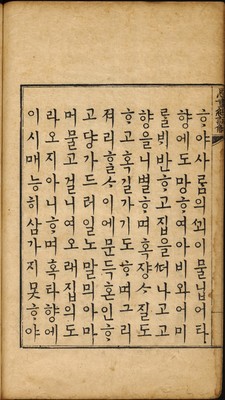 ᄒᆞ야사ᄅᆞᆷ의ᄭᅬ이믈닙어타
향에도망ᄒᆞ여아비와어미
ᄅᆞᆯᄇᆡ반ᄒᆞ고집을ᄯᅥ나고고
향을니별ᄒᆞ며혹쟝ᄉᆞ질도
ᄒᆞ고혹길가기도ᄒᆞ며그리
져리ᄒᆞᆯᄉᆞ이에문득혼인ᄒᆞ
고댱가드러일노말ᄆᆡ아마
머물고걸니여오래집의도
라오지아니ᄒᆞ며혹타향에
이시매능히삼가지못ᄒᆞ야